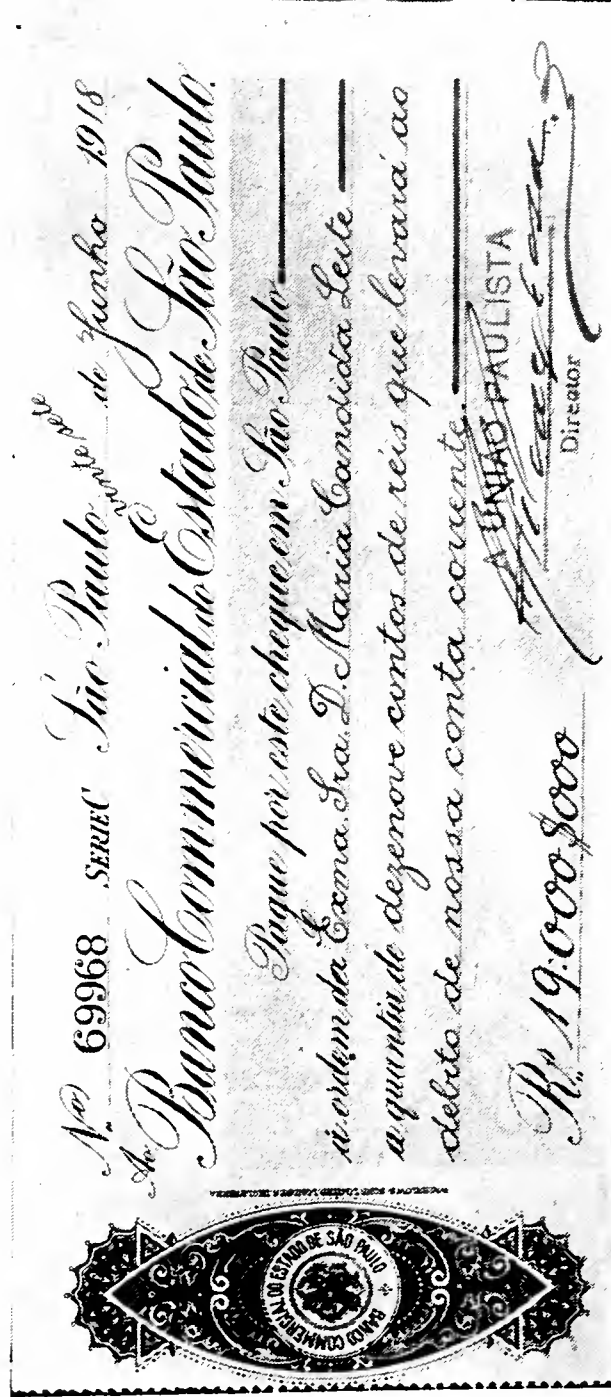 No 69968 SERIE C São Paulo vinte sete de Junho 1918
Ao Banco Commercial do Estado de São Paulo
Pague por este cheque em São Paulo
á ordem da Exma. Sra. D. Maria Candida Leite
a quantia de dezenove contos de réis que levará ao
debito de nossa conta corrente.
A UNIÃO PAULISTA
Rs 19:000$000
Director
BANCO COMMERCIAL DO ESTADO DE SÃO PAULO